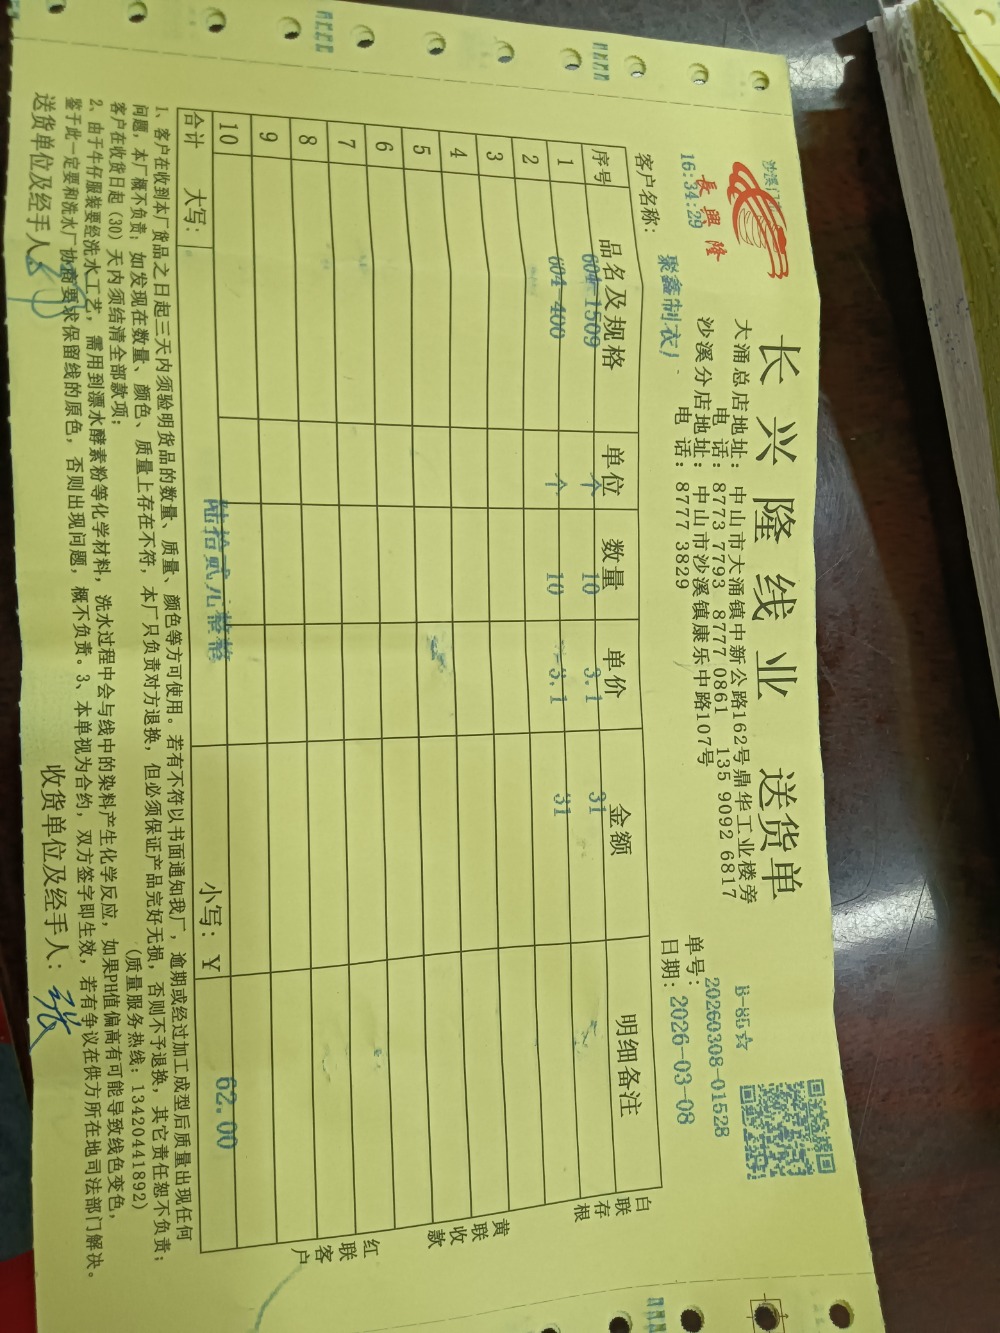 長興隆
16:34:29
长兴隆线业 送货单
大涌总店地址：中山市大涌镇中新公路162号鼎华工业楼旁
电 话：8773 7793 8777 0861 135 9092 6817
沙溪分店地址：中山市沙溪镇康乐中路107号
电 话：8777 3829
B-85☆
单号：20260308-01528
日期：2026-03-08
客户名称：聚鑫制衣厂
序号 品名及规格 单位 数量 单价 金额 明细备注
1 604-1509 个 10 3.1 31
2 604-400 个 10 3.1 31
3
4
5
6
7
8
9
10
合计 大写：陆拾贰元整 小写：￥ 62.00
白联存根
黄联收款
红联客户
1、客户在收到本厂货品之日起三天内须验明货品的数量、质量、颜色等方可使用。若有不符以书面通知我厂，逾期或经过加工成型后质量出现任何
问题，本厂概不负责；如发现在数量、颜色、质量上存在不符，本厂只负责对方退换，但必须保证产品完好无损，否则不予退换，其它责任恕不负责；
客户在收货日起（30）天内须结清全部款项； （质量服务热线：13420441892）
2、由于牛仔服装要经洗水工艺，需用到漂水酵素粉等化学材料，洗水过程中会与线中的染料产生化学反应，如果PH值偏高有可能导致线色变色，
鉴于此一定要和洗水厂协商要求保留线的原色，否则出现问题，概不负责。3、本单视为合约，双方签字即生效，若有争议在供方所在地司法部门解决。
送货单位及经手人： 收货单位及经手人：张